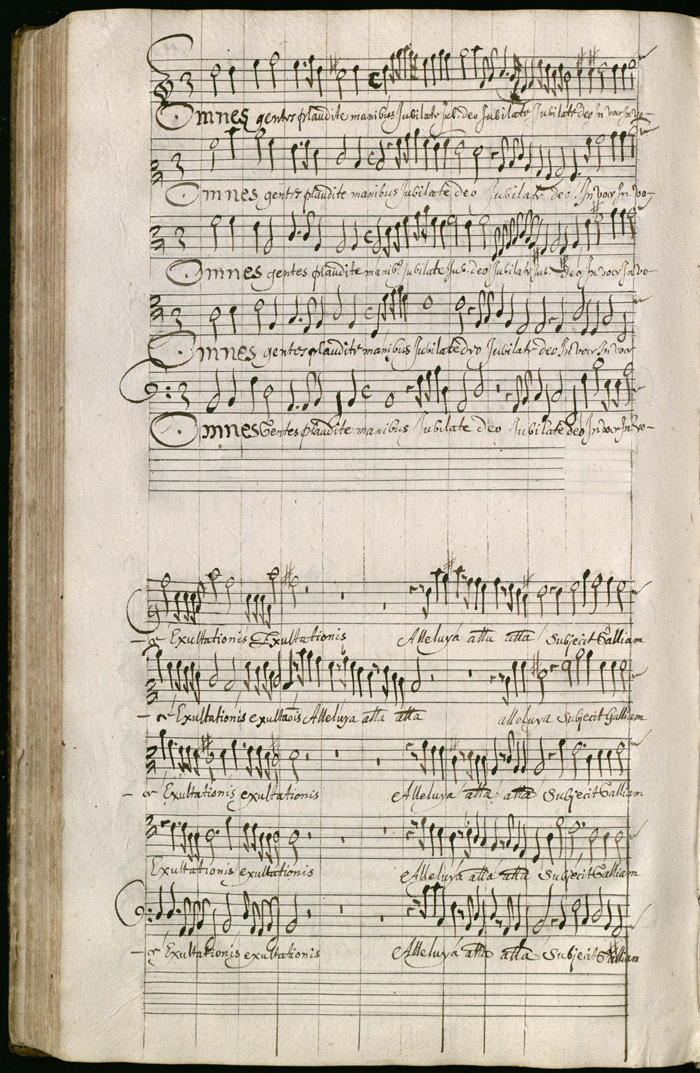 Omnes gentes plaudite manibus Jubilate Jub. deo Jubilate Jubilate deo In voce In vo-
Omnes gentes plaudite manibus Jubilate deo Jubilate deo In voce In vo-
Omnes gentes plaudite manib9 Jubilate Jub. deo Jubilate Jub. deo In voce In vo-
Omnes gentes plaudite manibus Jubilate deo Jubilate deo In voce In voce
Omnes Gentes plaudite manibus Jubilate deo Jubilate deo In voce In vo-
Exultationis Exultationis Alleluya alla alla Subjecit Galliam
Exultationis exultaōis Alleluya alla alla alleluya Subjecit Galliam
Exultationis exultationis Alleluya alla alla Subjecit Galliam
Exultationis exultationis Alleluya alla alla Subjecit Galliam
Exultationis exultationis Alleluya alla alla Subjecit Galliam